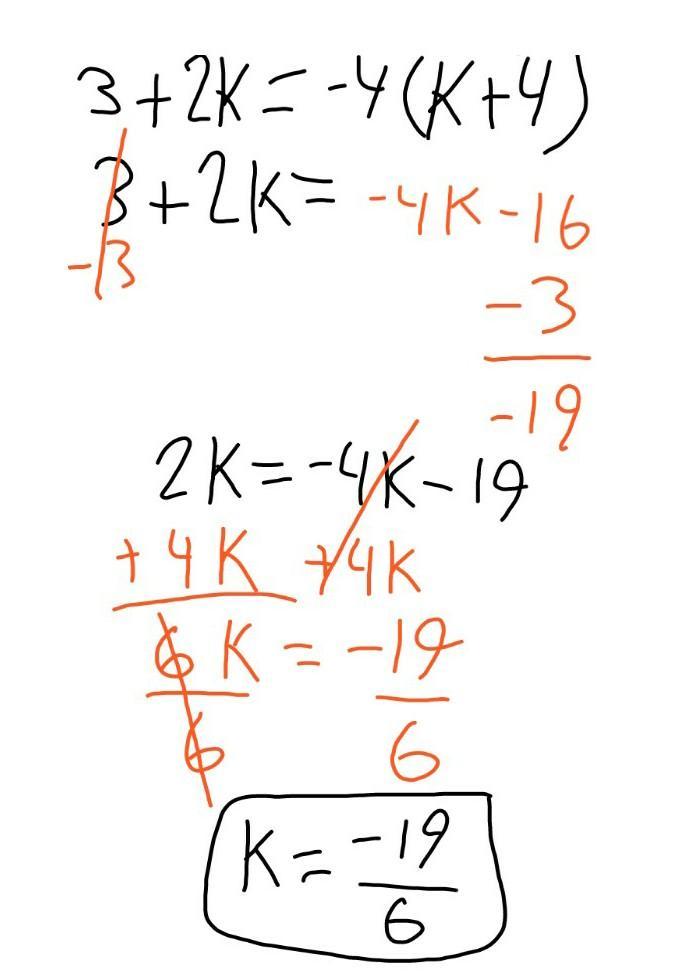 3+2K=-4(K+4)
3+2K=-4K-16
-3
-3
-19
2K=-4K-19
+4K +4K
6K=-19
6 6
K=-19
6